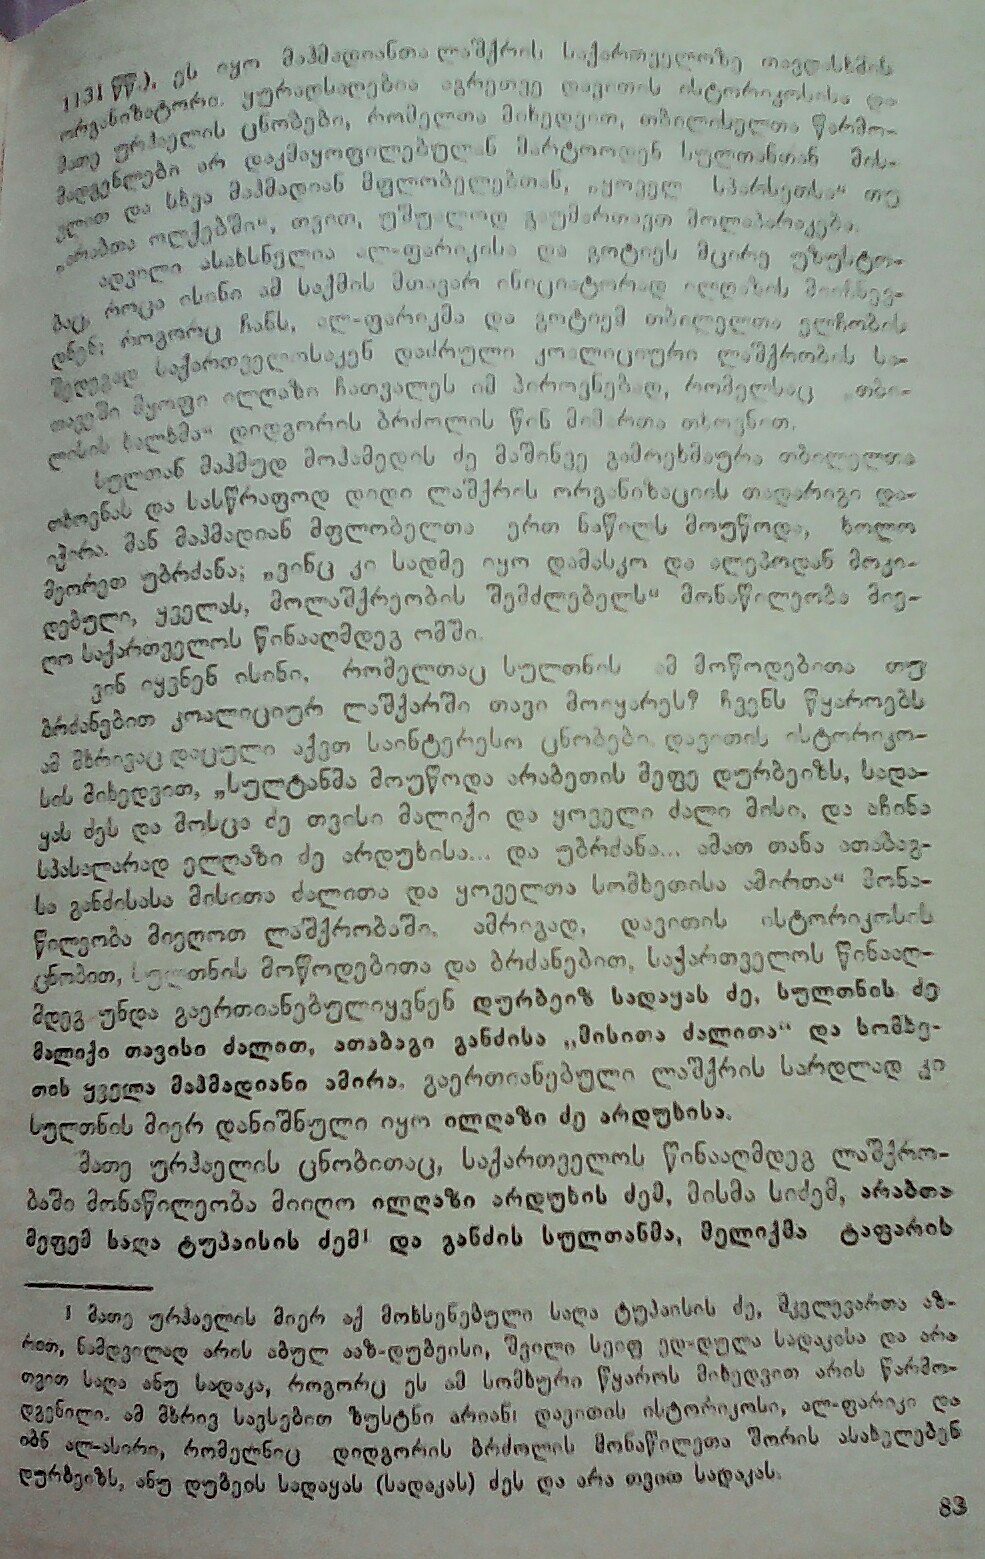 1131 წწ.), ეს იყო მაჰმადიანთა ლაშქრის საქართველოზე თავდასხმის
ორგანიზატორი. ყურადსაღებია აგრეთვე დავითის ისტორიკოსისა და
მათე ურჰაელის ცნობები, რომელთა მიხედვით, თბილისელთა წარმო-
მადგენლები არ დაკმაყოფილებულან მარტოოდენ სულთანთან მის-
ვლით და სხვა მაჰმადიან მფლობელებთან, „ყოველ სპარსეთსა“ თუ
„არაბთა ოლქებში“, თვით, უშუალოდ გაუმართავთ მოლაპარაკება.
ადვილი ასახსნელია ალ-ფარიკისა და გოტიეს მცირე უზუსტო-
ბაც, როცა ისინი ამ საქმის მთავარ ინიციატორად ილღაზის მიიჩნევ-
დნენ; როგორც ჩანს, ალ-ფარიკმა და გოტიემ თბილელთა ელჩობის
შედეგად საქართველოსაკენ დაძრული კოალიციური ლაშქრობის სა-
თავეში მყოფი ილღაზი ჩათვალეს იმ პიროვნებად, რომელსაც „თბი-
ლისის ხალხმა“ დიდგორის ბრძოლის წინ მიმართა თხოვნით.
სულთან მაჰმუდ მოჰამედის ძე მაშინვე გამოეხმაურა თბილელთა
თხოვნას და სასწრაფოდ დიდი ლაშქრის ორგანიზაციის თადარიგი და-
იჭირა. მან მაჰმადიან მფლობელთა ერთ ნაწილს მოუწოდა, ხოლო
მეორეთ უბრძანა; „ვინც კი სადმე იყო დამასკო და ალეპოდან მოკი-
დებული, ყველას, მოლაშქრეობის შემძლებელს“ მონაწილეობა მიე-
ღო საქართველოს წინააღმდეგ ომში.
ვინ იყვნენ ისინი, რომელთაც სულთნის ამ მოწოდებითა თუ
ბრძანებით კოალიციურ ლაშქარში თავი მოიყარეს? ჩვენს წყაროებს
ამ მხრივაც დაცული აქვთ საინტერესო ცნობები. დავითის ისტორიკო-
სის მიხედვით, „სულტანმა მოუწოდა არაბეთის მეფე დურბეიზს, სადა-
ყას ძეს და მოსცა ძე თვისი მალიქი და ყოველი ძალი მისი, და აჩინა
სპასალარად ელღაზი ძე არდუხისა... და უბრძანა... ამათ თანა ათაბაგ-
სა განძისასა მისითა ძალითა და ყოველთა სომხეთისა ამირთა“ მონა-
წილეობა მიეღოთ ლაშქრობაში. ამრიგად, დავითის ისტორიკოსის
ცნობით, სულთნის მოწოდებითა და ბრძანებით, საქართველოს წინააღ-
მდეგ უნდა გაერთიანებულიყვნენ დურბეიზ სადაყას ძე, სულთნის ძე
მალიქი თავისი ძალით, ათაბაგი განძისა „მისითა ძალითა“ და სომხე-
თის ყველა მაჰმადიანი ამირა. გაერთიანებული ლაშქრის სარდლად კი
სულთნის მიერ დანიშნული იყო ილღაზი ძე არდუხისა.
მათე ურჰაელის ცნობითაც, საქართველოს წინააღმდეგ ლაშქრო-
ბაში მონაწილეობა მიიღო ილღაზი არდუხის ძემ, მისმა სიძემ, არაბთა
მეფემ საღა ტუპაისის ძემ¹ და განძის სულთანმა, მელიქმა ტაფარის
1 მათე ურჰაელის მიერ აქ მოხსენებული საღა ტუპაისის ძე, მკვლევართა აზ-
რით, ნამდვილად არის აბულ ააზ-დუბეისი, შვილი სეიფ ედ-დულა სადაკისა და არა
თვით საღა ანუ სადაკა, როგორც ეს ამ სომხური წყაროს მიხედვით არის წარმო-
დგენილი. ამ მხრივ სავსებით ზუსტნი არიან: დავითის ისტორიკოსი, ალ-ფარიკი და
იბნ ალ-ასირი, რომელნიც დიდგორის ბრძოლის მონაწილეთა შორის ასახელებენ
დურბეიზს, ანუ დუბეის სადაყას (სადაკას) ძეს და არა თვით სადაკას.
83